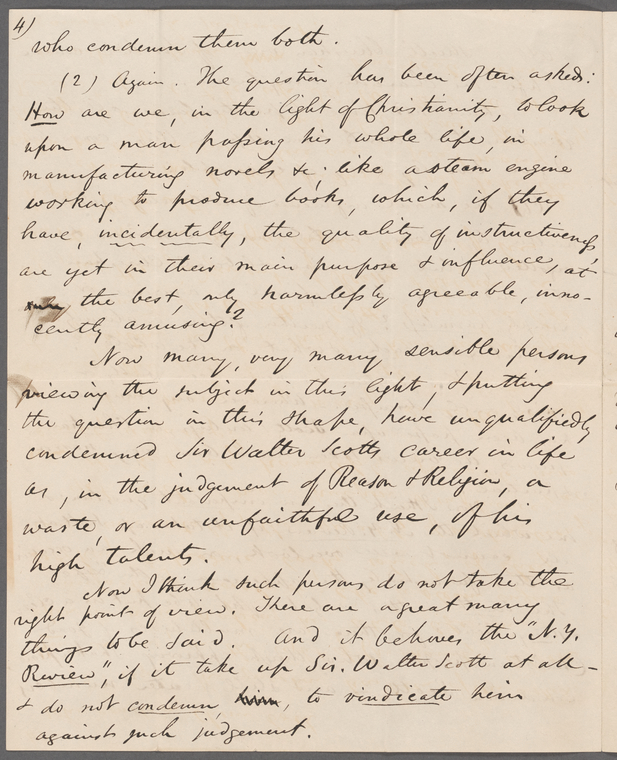 4)
who condemn them both.
(2) Again. The question has been often asked:
How are we, in the light of Christianity, to look
upon a man passing his whole life, in
manufacturing novels &c; like a steam engine
working to produce books, which, if they
have, incidentally, the quality of instructiveness,
are yet in their main purpose & influence, at
the best, only harmlessly agreeable, inno-
cently amusing?
Now many, very many sensible persons
viewing the subject in this light, & putting
the question in this shape, have unqualifiedly
condemned Sir Walter Scotts career in life
as, in the judgement of Reason & Religion, a
waste, or an unfaithful use, of his
high talents.
Now I think such persons do not take the
right point of view. There are a great many
things to be said. And it behoves the "N.Y.
Review", if it take up Sir. Walter Scott at all –
& do not condemn, him, to vindicate him
against such judgement.